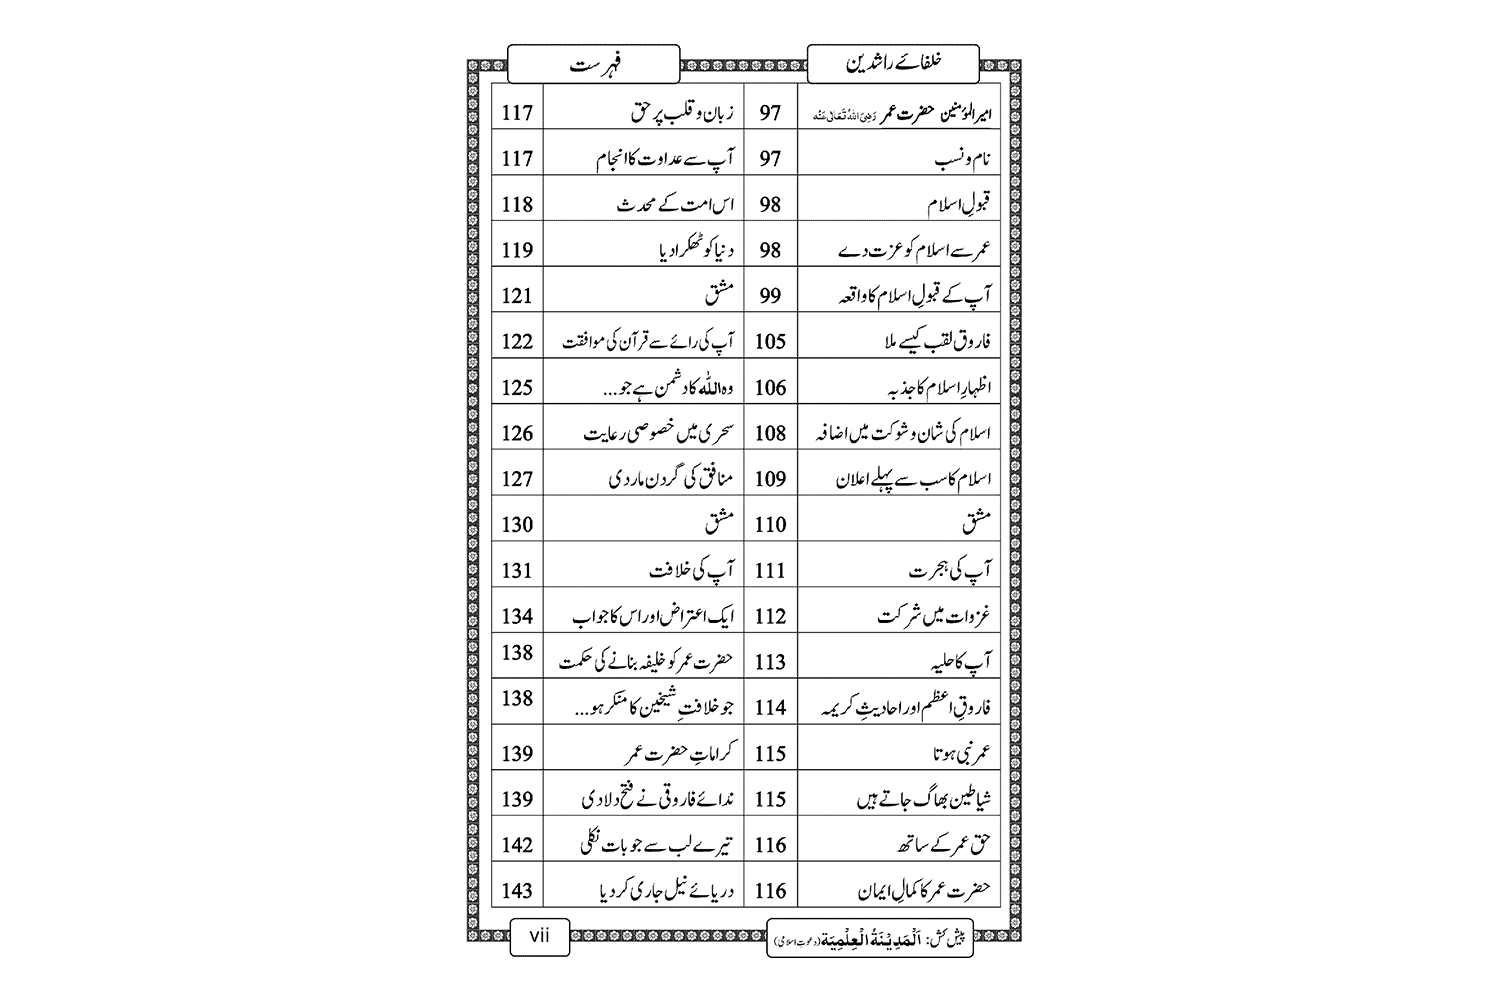 خلفائے راشدین
فہرست
امیر المؤمنین حضرت عمر رَضِیَ اللہُ تَعَالٰی عَنْہ 97
نام و نسب 97
قبولِ اسلام 98
عمر سے اسلام کو عزت دے 98
آپ کے قبولِ اسلام کا واقعہ 99
فاروق لقب کیسے ملا 105
اظہارِ اسلام کا جذبہ 106
اسلام کی شان و شوکت میں اضافہ 108
اسلام کا سب سے پہلے اعلان 109
مشق 110
آپ کی ہجرت 111
غزوات میں شرکت 112
آپ کا حلیہ 113
فاروقِ اعظم اور احادیثِ کریمہ 114
عمر نبی ہوتا 115
شیاطین بھاگ جاتے ہیں 115
حق عمر کے ساتھ 116
حضرت عمر کا کمالِ ایمان 116
زبان و قلب پر حق 117
آپ سے عداوت کا انجام 117
اس امت کے محدث 118
دنیا کو ٹھکرا دیا 119
مشق 121
آپ کی رائے سے قرآن کی موافقت 122
وہ اللہ کا دشمن ہے جو... 125
سحری میں خصوصی رعایت 126
منافق کی گردن مار دی 127
مشق 130
آپ کی خلافت 131
ایک اعتراض اور اس کا جواب 134
حضرت عمر کو خلیفہ بنانے کی حکمت 138
جو خلافتِ شیخین کا منکر ہو... 138
کراماتِ حضرت عمر 139
ندائے فاروقی نے فتح دلا دی 139
تیرے لب سے جو بات نکلی 142
دریائے نیل جاری کر دیا 143
پیش کش: اَلْمَدِیْنَۃُ الْعِلْمِیَۃ (دعوتِ اسلامی)
vii